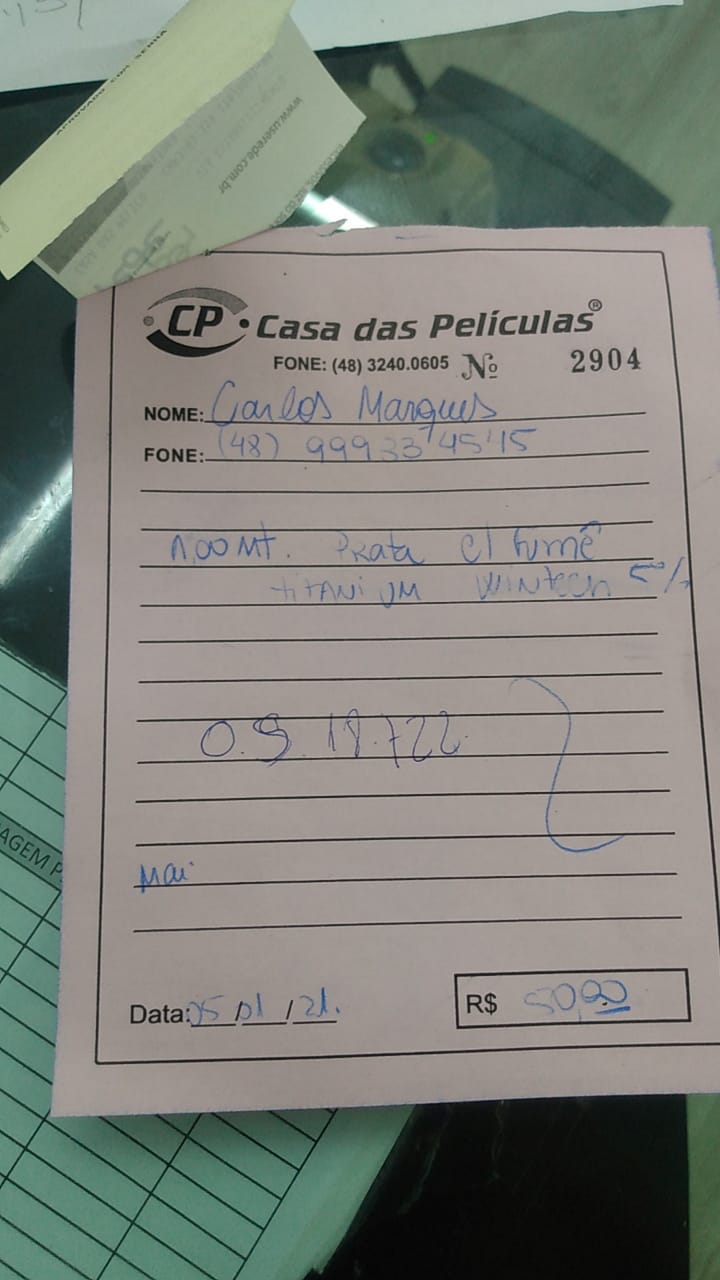 www.userede.com.br
CP Casa das Películas®
FONE: (48) 3240.0605 Nº 2904
NOME: Carlos Marques
FONE: (48) 99933 4545
1,00 Mt. Prata c/ fumê
titanium Wintech 5%
O.S 18.722
Mai
Data: 05/01/21.
R$ 50,00
AGEM P